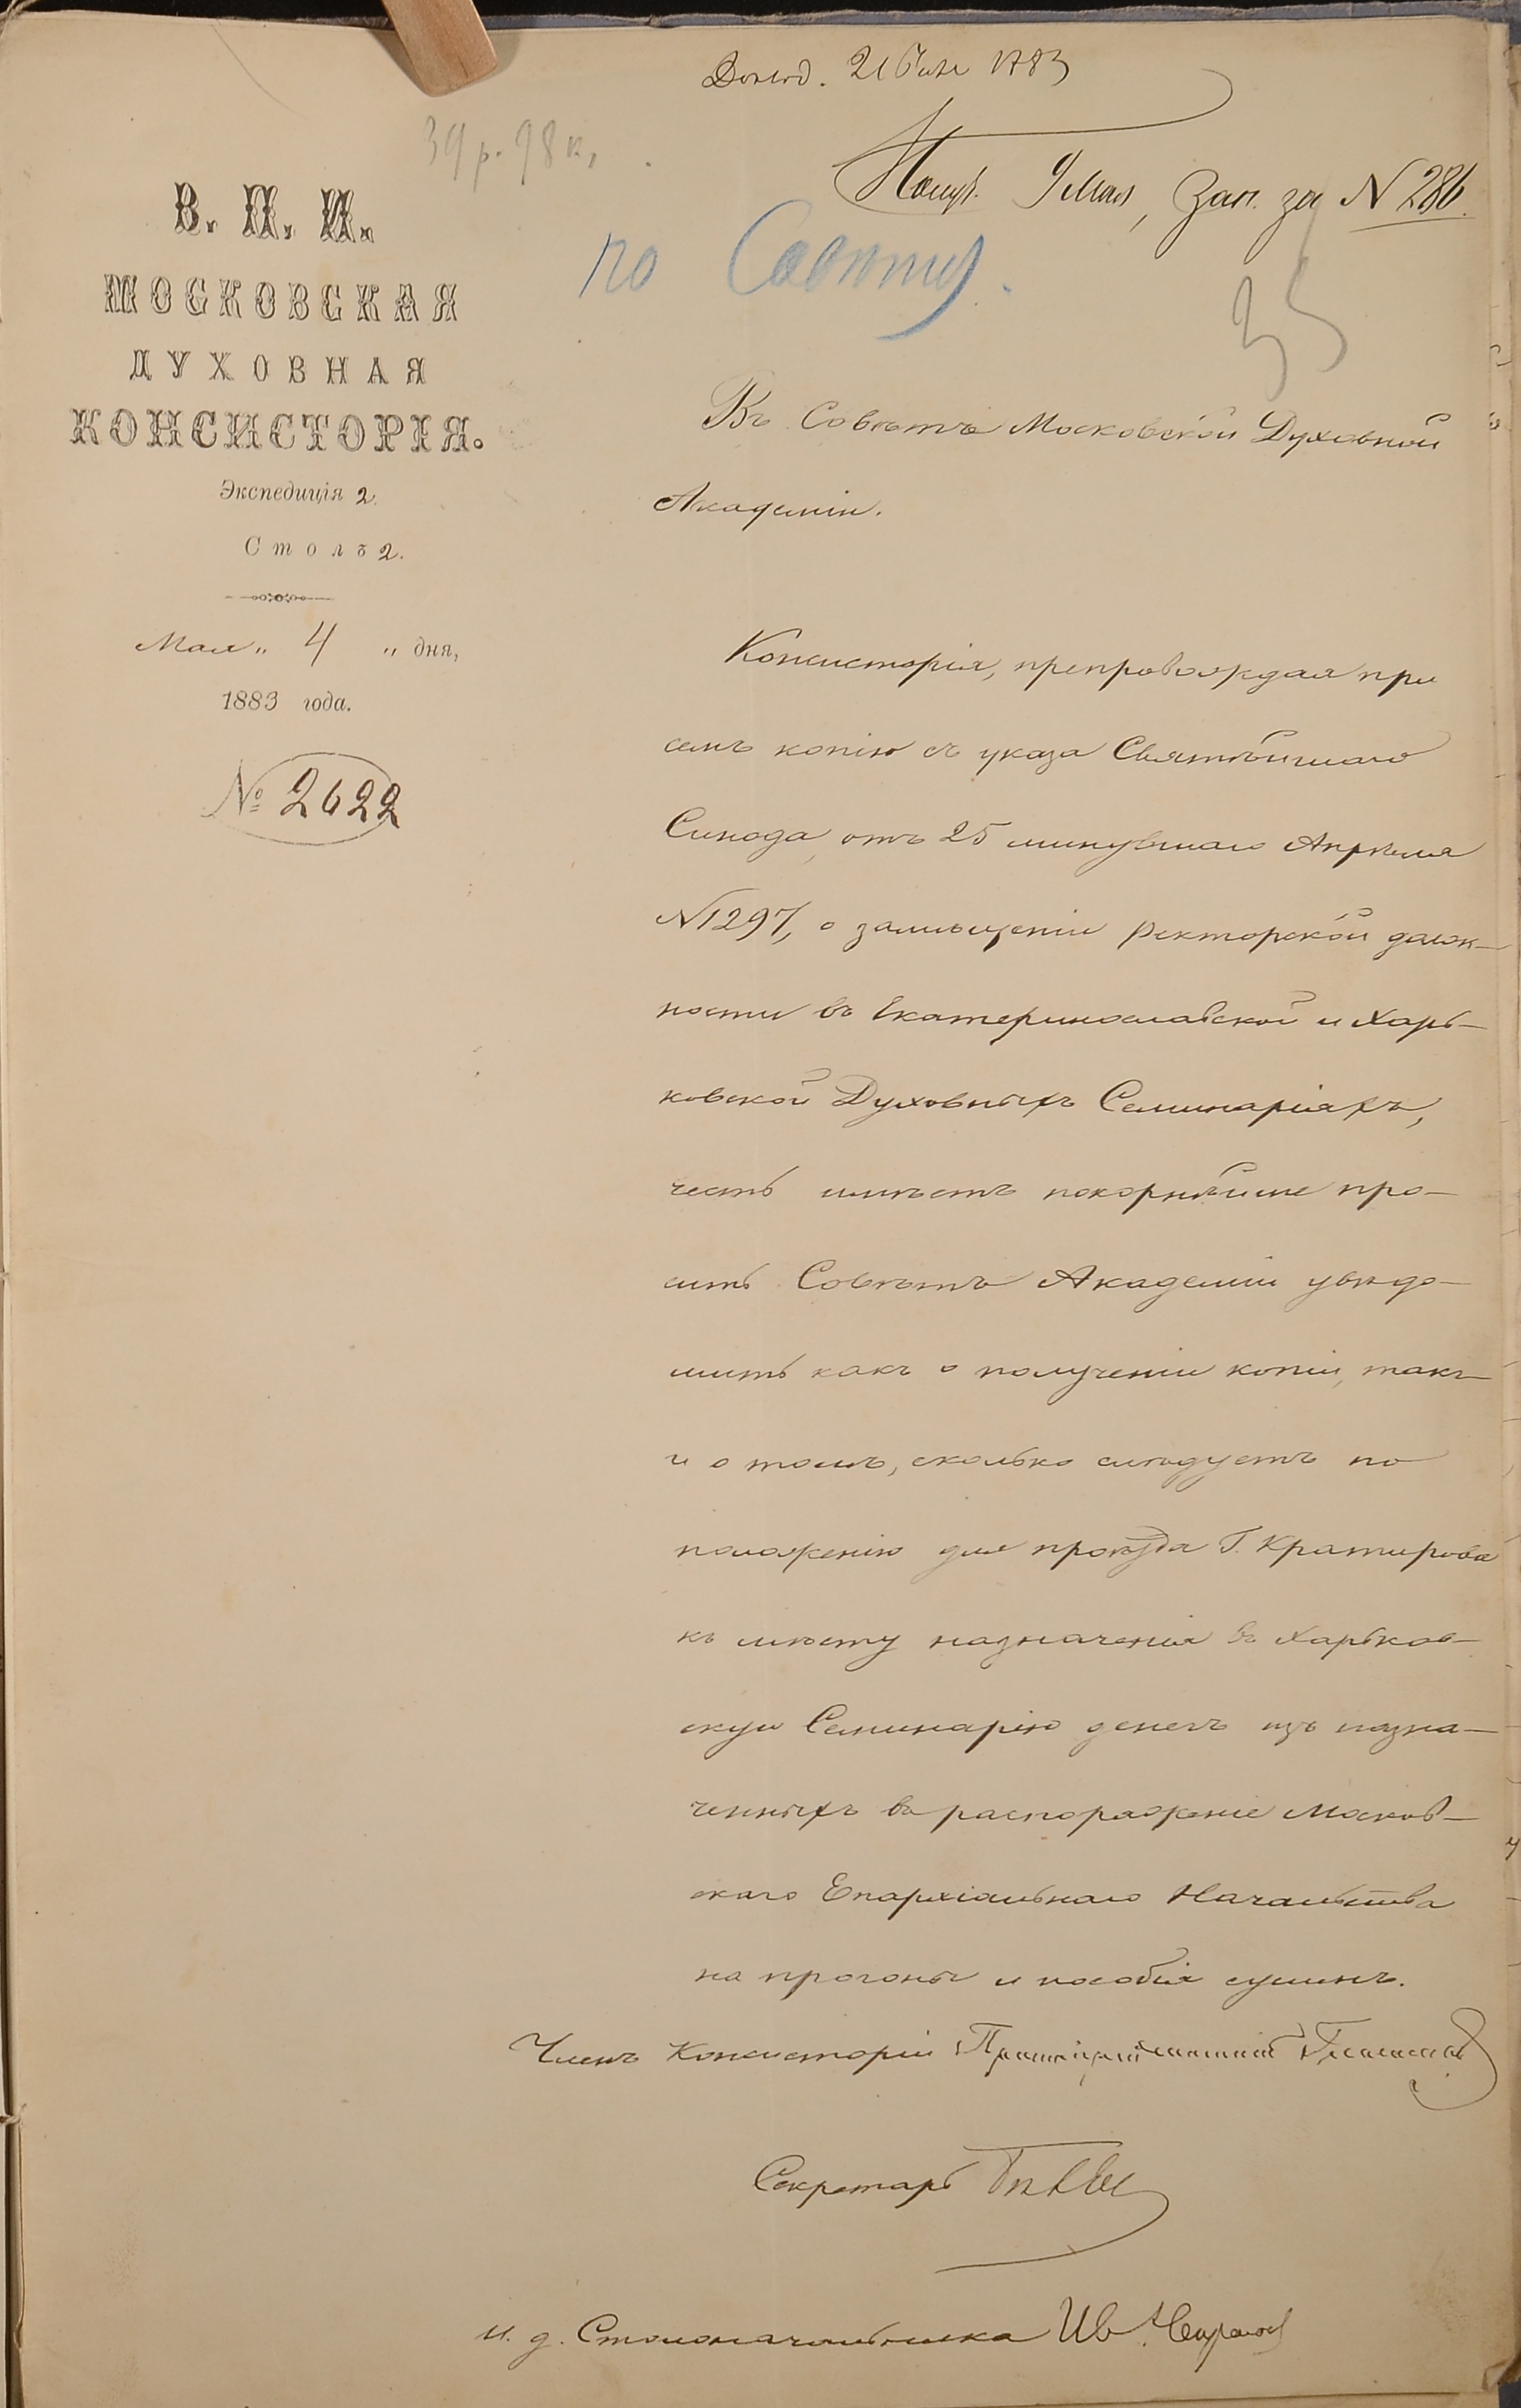 Долож. 21 Мая 1883
39 р. 98 к.
Получ. 9 Мая, Зап. за N 286.
по Совѣту.
35
В. П. И.
МОСКОВСКАЯ
ДУХОВНАЯ
КОНСИСТОРІЯ.
Экспедиція 2.
Столъ 2.
Мая „ 4 „ дня,
1883 года.
№ 2622
Въ Совѣтъ Московской Духовной
Академіи.
Консисторія, препровождая при
семъ копію съ указа Святѣйшаго
Синода, отъ 25 минувшаго Апрѣля
N 1297, о замѣщеніи ректорской долж-
ности въ Екатеринославской и Харь-
ковской Духовныхъ Семинаріяхъ,
честь имѣетъ покорнѣйше про-
сить Совѣтъ Академіи увѣдо-
мить какъ о полученіи копіи, такъ
и о томъ, сколько слѣдуетъ по
положенію для проѣзда Г. Кратирова
къ мѣсту назначенія въ Харьков-
скую Семинарію денегъ изъ назна-
ченныхъ въ распоряженіе Москов-
скаго Епархіальнаго Начальства
на прогоны и пособія суммъ.
Членъ Консисторіи
Секретарь
и. д. Столоначальника Ив.